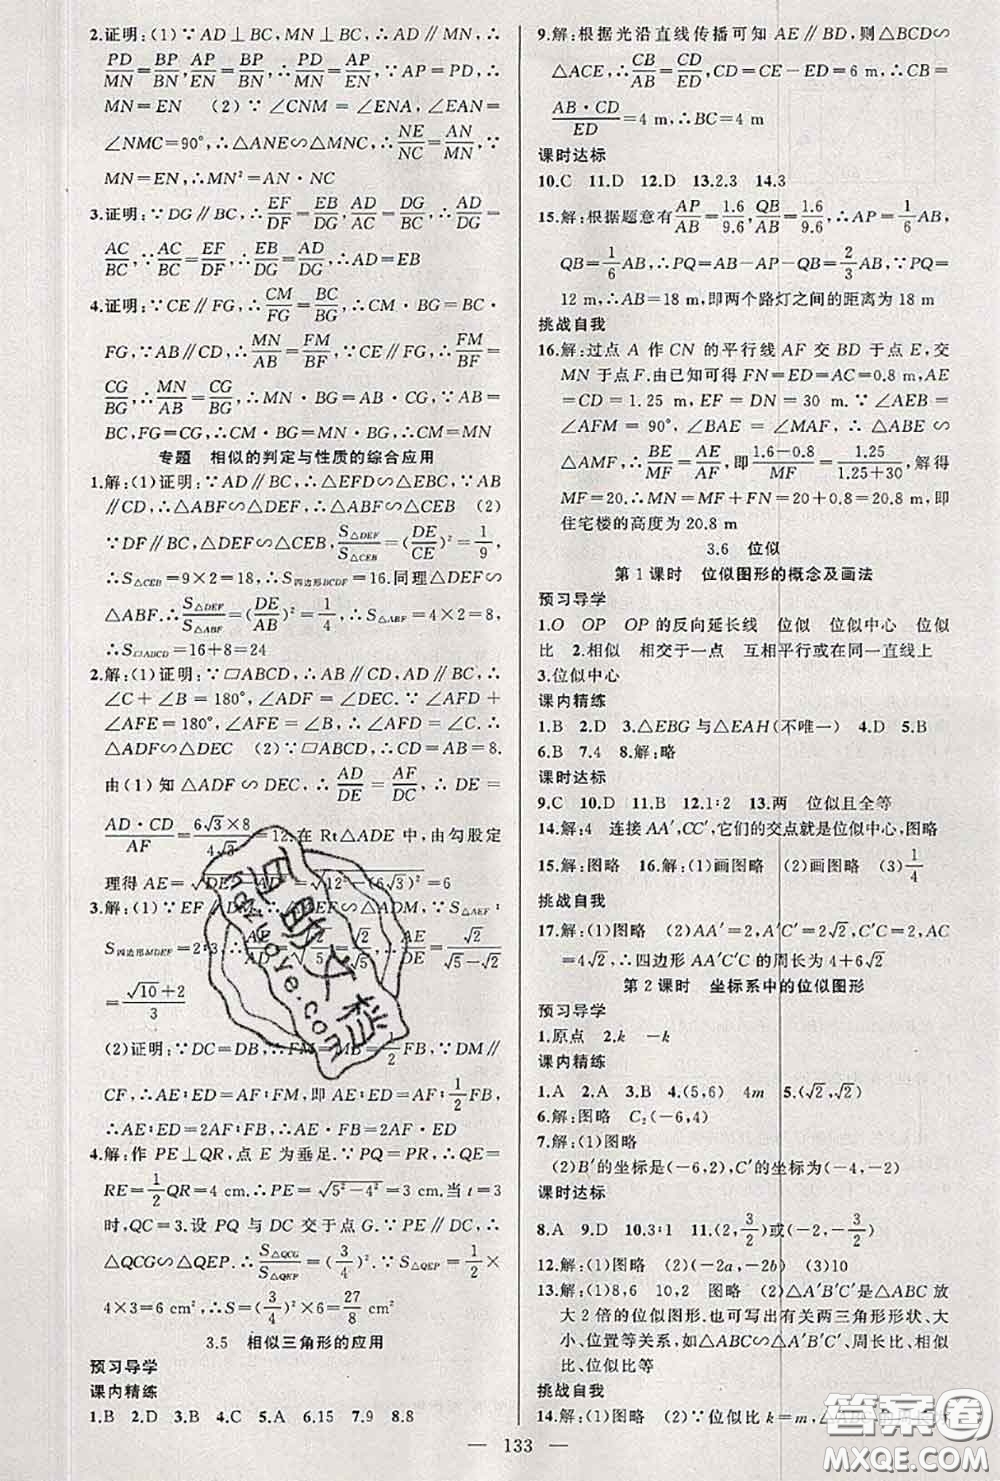 2.证明:(1)∵AD⊥BC,MN⊥BC,∴AD∥MN,∴
PD/MN=BP/BN,AP/EN=BP/BN,∴PD/MN=AP/EN,∵AP=PD,∴
MN=EN (2)∵∠CNM=∠ENA,∠EAN=
∠NMC=90°,∴△ANE∽△MNC,∴NE/NC=AN/MN,∵
MN=EN,∴MN²=AN·NC
3.证明:∵DG∥BC,∴EF/DF=EB/DG,AD/AC=DG/BC,∴AD/DG=
AC/BC,∵AC/BC=EF/DF,∴EB/DG=AD/DG,∴AD=EB
4.证明:∵CE∥FG,∴CM/FG=BC/BG,∴CM·BG=BC·
FG,∵AB∥CD,∴MN/AB=FM/BF,∵CE∥FG,∴FM/BF=
CG/BG,∴MN/AB=CG/BG,∴MN·BG=AB·CG,∵AB=
BC,FG=CG,∴CM·BG=MN·BG,∴CM=MN
专题 相似的判定与性质的综合应用
1.解:(1)证明:∵AD∥BC,∴△EFD∽△EBC,∵AB
∥CD,∴△ABF∽△DEF,∴△ABF∽△CEB (2)
∵DF∥BC,△DEF∽△CEB,∴S△DEF/S△CEB=(DE/CE)²=1/9,
∴S△CEB=9×2=18,∴S四边形BCDF=16.同理△DEF∽
△ABF.∴S△DEF/S△ABF=(DE/AB)²=1/4,∴S△ABF=4×2=8,
∴S□ABCD=16+8=24
2.解:(1)证明:∵□ABCD,∴AB∥CD,AD∥BC,∴
∠C+∠B=180°,∠ADF=∠DEC.∵∠AFD+
∠AFE=180°,∠AFE=∠B,∴∠AFD=∠C.∴
△ADF∽△DEC (2)∵□ABCD,∴CD=AB=8.
由(1)知△ADF∽DEC,∴AD/DE=AF/DC,∴DE=
AD·CD/AF=6√3×8/4√3=12.在Rt△ADE中,由勾股定
理得AE=√DE²-AD²=√12²-(6√3)²=6
3.解:(1)∵EF∥DM,∴△AEF∽△ADM,∵S△AEF:
S四边形MDEF=2:3,∴AE/AD=√2/√5,∴AE/ED=√2/(√5-√2)=
(√10+2)/3
(2)证明:∵DC=DB,∴FM=MB=1/2FB,∵DM∥
CF,∴AE:ED=AF:FM,即AE:ED=AF:1/2FB,
∴AE:ED=2AF:FB,∴AE·FB=2AF·ED
4.解:作PE⊥QR,点E为垂足.∵PQ=PR,∴QE=
RE=1/2QR=4 cm.∴PE=√5²-4²=3 cm.当t=3
时,QC=3.设PQ与DC交于点G.∵PE∥DC,∴
△QCG∽△QEP.∴S△QCG/S△QEP=(3/4)².∵S△QEP=1/2×
4×3=6 cm²,∴S=(3/4)²×6=27/8 cm²
3.5 相似三角形的应用
预习导学
课内精练
1.B 2.D 3.B 4.C 5.A 6.15 7.9 8.8
9.解:根据光沿直线传播可知AE∥BD,则△BCD∽
△ACE,∴CB/AB=CD/ED,∵CD=ED=6 m,∴CB=
AB·CD/ED=4 m,∴BC=4 m
课时达标
10.C 11.D 12.D 13.2.3 14.3
15.解:根据题意有AP/AB=1.6/9.6,QB/AB=1.6/9.6,∴AP=1/6AB,
QB=1/6AB,∴PQ=AB-AP-QB=2/3AB,∵PQ=
12 m,∴AB=18 m,即两个路灯之间的距离为18 m
挑战自我
16.解:过点A作CN的平行线AF交BD于点E,交
MN于点F.由已知可得FN=ED=AC=0.8 m,AE
=CD=1.25 m,EF=DN=30 m.∵∠AEB=
∠AFM=90°,∠BAE=∠MAF,∴△ABE∽
△AMF,∴BE/MF=AE/AF,即1.6-0.8/MF=1.25/1.25+30,解得
MF=20.∴MN=MF+FN=20+0.8=20.8 m,即
住宅楼的高度为20.8 m
3.6 位似
第1课时 位似图形的概念及画法
预习导学
1.O OP OP的反向延长线 位似 位似中心 位似
比 2.相似 相交于一点 互相平行或在同一直线上
3.位似中心
课内精练
1.B 2.D 3.△EBG与△EAH(不唯一) 4.D 5.B
6.B 7.4 8.解:略
课时达标
9.C 10.D 11.D 12.1:2 13.两 位似且全等
14.解:4 连接AA′,CC′,它们的交点就是位似中心,图略
15.解:图略 16.解:(1)画图略 (2)画图略 (3)1/4
挑战自我
17.解:(1)图略 (2)AA′=2,A′C′=2√2=C′C,AC
=4√2,∴四边形AA′C′C的周长为4+6√2
第2课时 坐标系中的位似图形
预习导学
1.原点 2.k -k
课内精练
1.A 2.A 3.B 4.(5,6) 4m 5.(√2,√2)
6.解:图略 C₂(-6,4)
7.解:(1)图略
(2)B′的坐标是(-6,2),C′的坐标为(-4,-2)
课时达标
8.A 9.D 10.3:1 11.(2,3/2)或(-2,-3/2)
12.解:(1)图略 (2)(-2a,-2b) (3)10
13.解:(1)8,6 10,2 图略 (2)△A′B′C′是△ABC放
大2倍的位似图形.也可写出有关两三角形形状、大
小、位置等关系,如△ABC∽△A′B′C′、周长比、相似
比、位似比等
挑战自我
14.解:(1)图略 (2)∵位似比k=m,△
— 133 —
百助文档
www.kgoye.com
答案圈
MXQE.COM